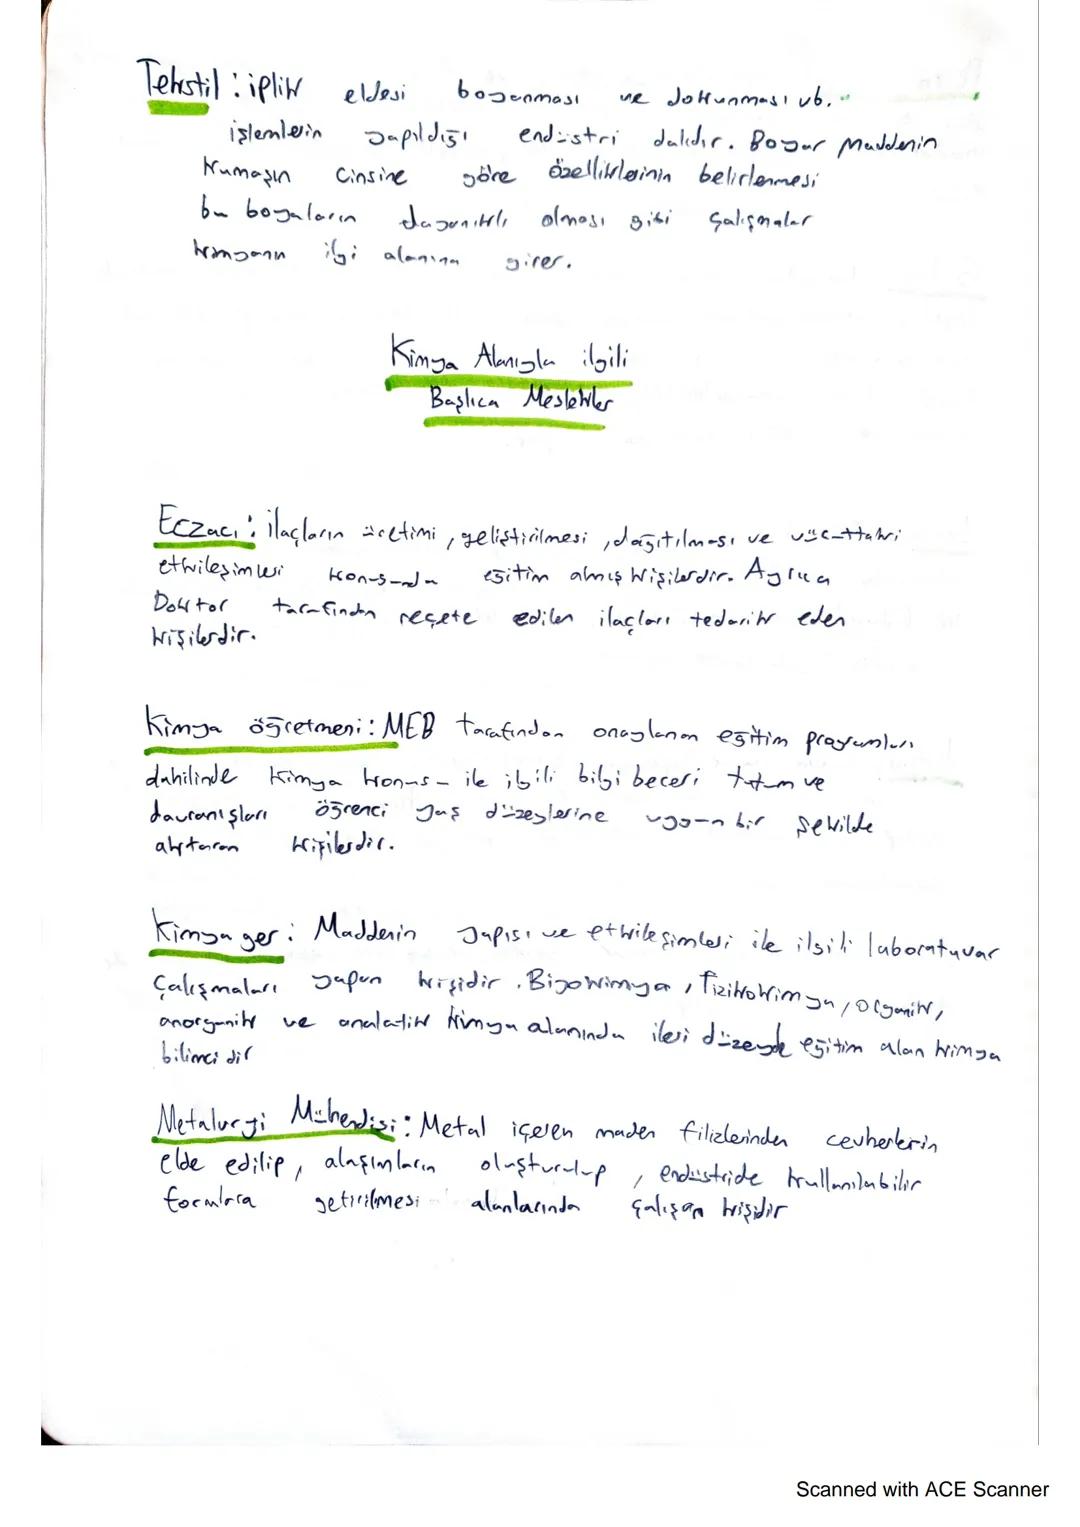 Tekstil : iplik eldesi boyanması ve dokunması vb.
işlemlerin yapıldığı endüstri dalıdır. Boyar Maddenin
Kumaşın Cinsine göre özelliklerinin belirlenmesi
bu boyaların dayanıklı olması gibi çalışmalar
kimyanın ilgi alanına girer.
Kimya Alanıyla ilgili
Başlıca Meslekler
Eczacı : ilaçların üretimi , geliştirilmesi , dağıtılması ve vücuttaki
etkileşimleri konusunda eğitim almış kişilerdir. Ayrıca
Doktor tarafından reçete edilen ilaçları tedarik eden
kişilerdir.
Kimya öğretmeni : MEB tarafından onaylanan eğitim programları
dahilinde Kimya konusu ile ilgili bilgi beceri tutum ve
davranışları öğrenci yaş düzeylerine uygun bir şekilde
aktaran kişilerdir.
Kimyager : Maddenin yapısı ve etkileşimleri ile ilgili laboratuvar
Çalışmaları yapan kişidir . Biyokimya , Fizikokimya , Organik ,
anorganik ve analatik kimya alanında ileri düzeyde eğitim alan kimya
bilimci dir
Metalurji Mühendisi : Metal içeren maden filizlerinden cevherlerin
elde edilip , alaşımların oluşturulup , endüstride kullanılabilir
formlara getirilmesi alanlarında çalışan kişidir
Scanned with ACE Scanner